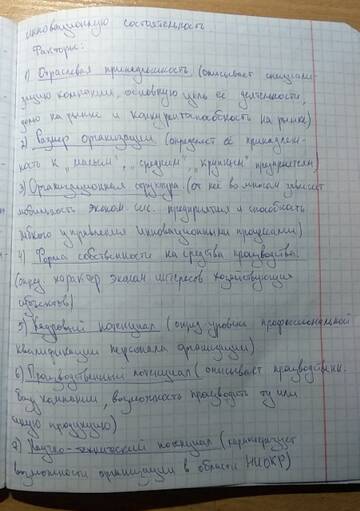 инновационную состоятельность
Факторы:
1) Отраслевая принадлежность (описывает специали
зацию компании, основную цель её деятельности,
долю на рынке и конкурентоспособность на рынке)
2) Размер организации (определяет её принадлеж-
ность к "малым", "средним", "крупным" предприятиям)
3) Организационная структура (от неё во многом зависит
мобильность эконом. сис. предприятия и способность
гибкого управления инновационными процессами)
4) Форма собственности на средства производства
(опред характер эконом интересов хозяйствующих
субъектов)
5) Кадровый потенциал (опред уровень профессиональной
квалификации персонала организации)
6) Производственный потенциал (описывает производствен.
базу компании, возможность производить ту или
иную продукцию)
7) Научно-технический потенциал (характеризует
возможности организации в области НИОКР)